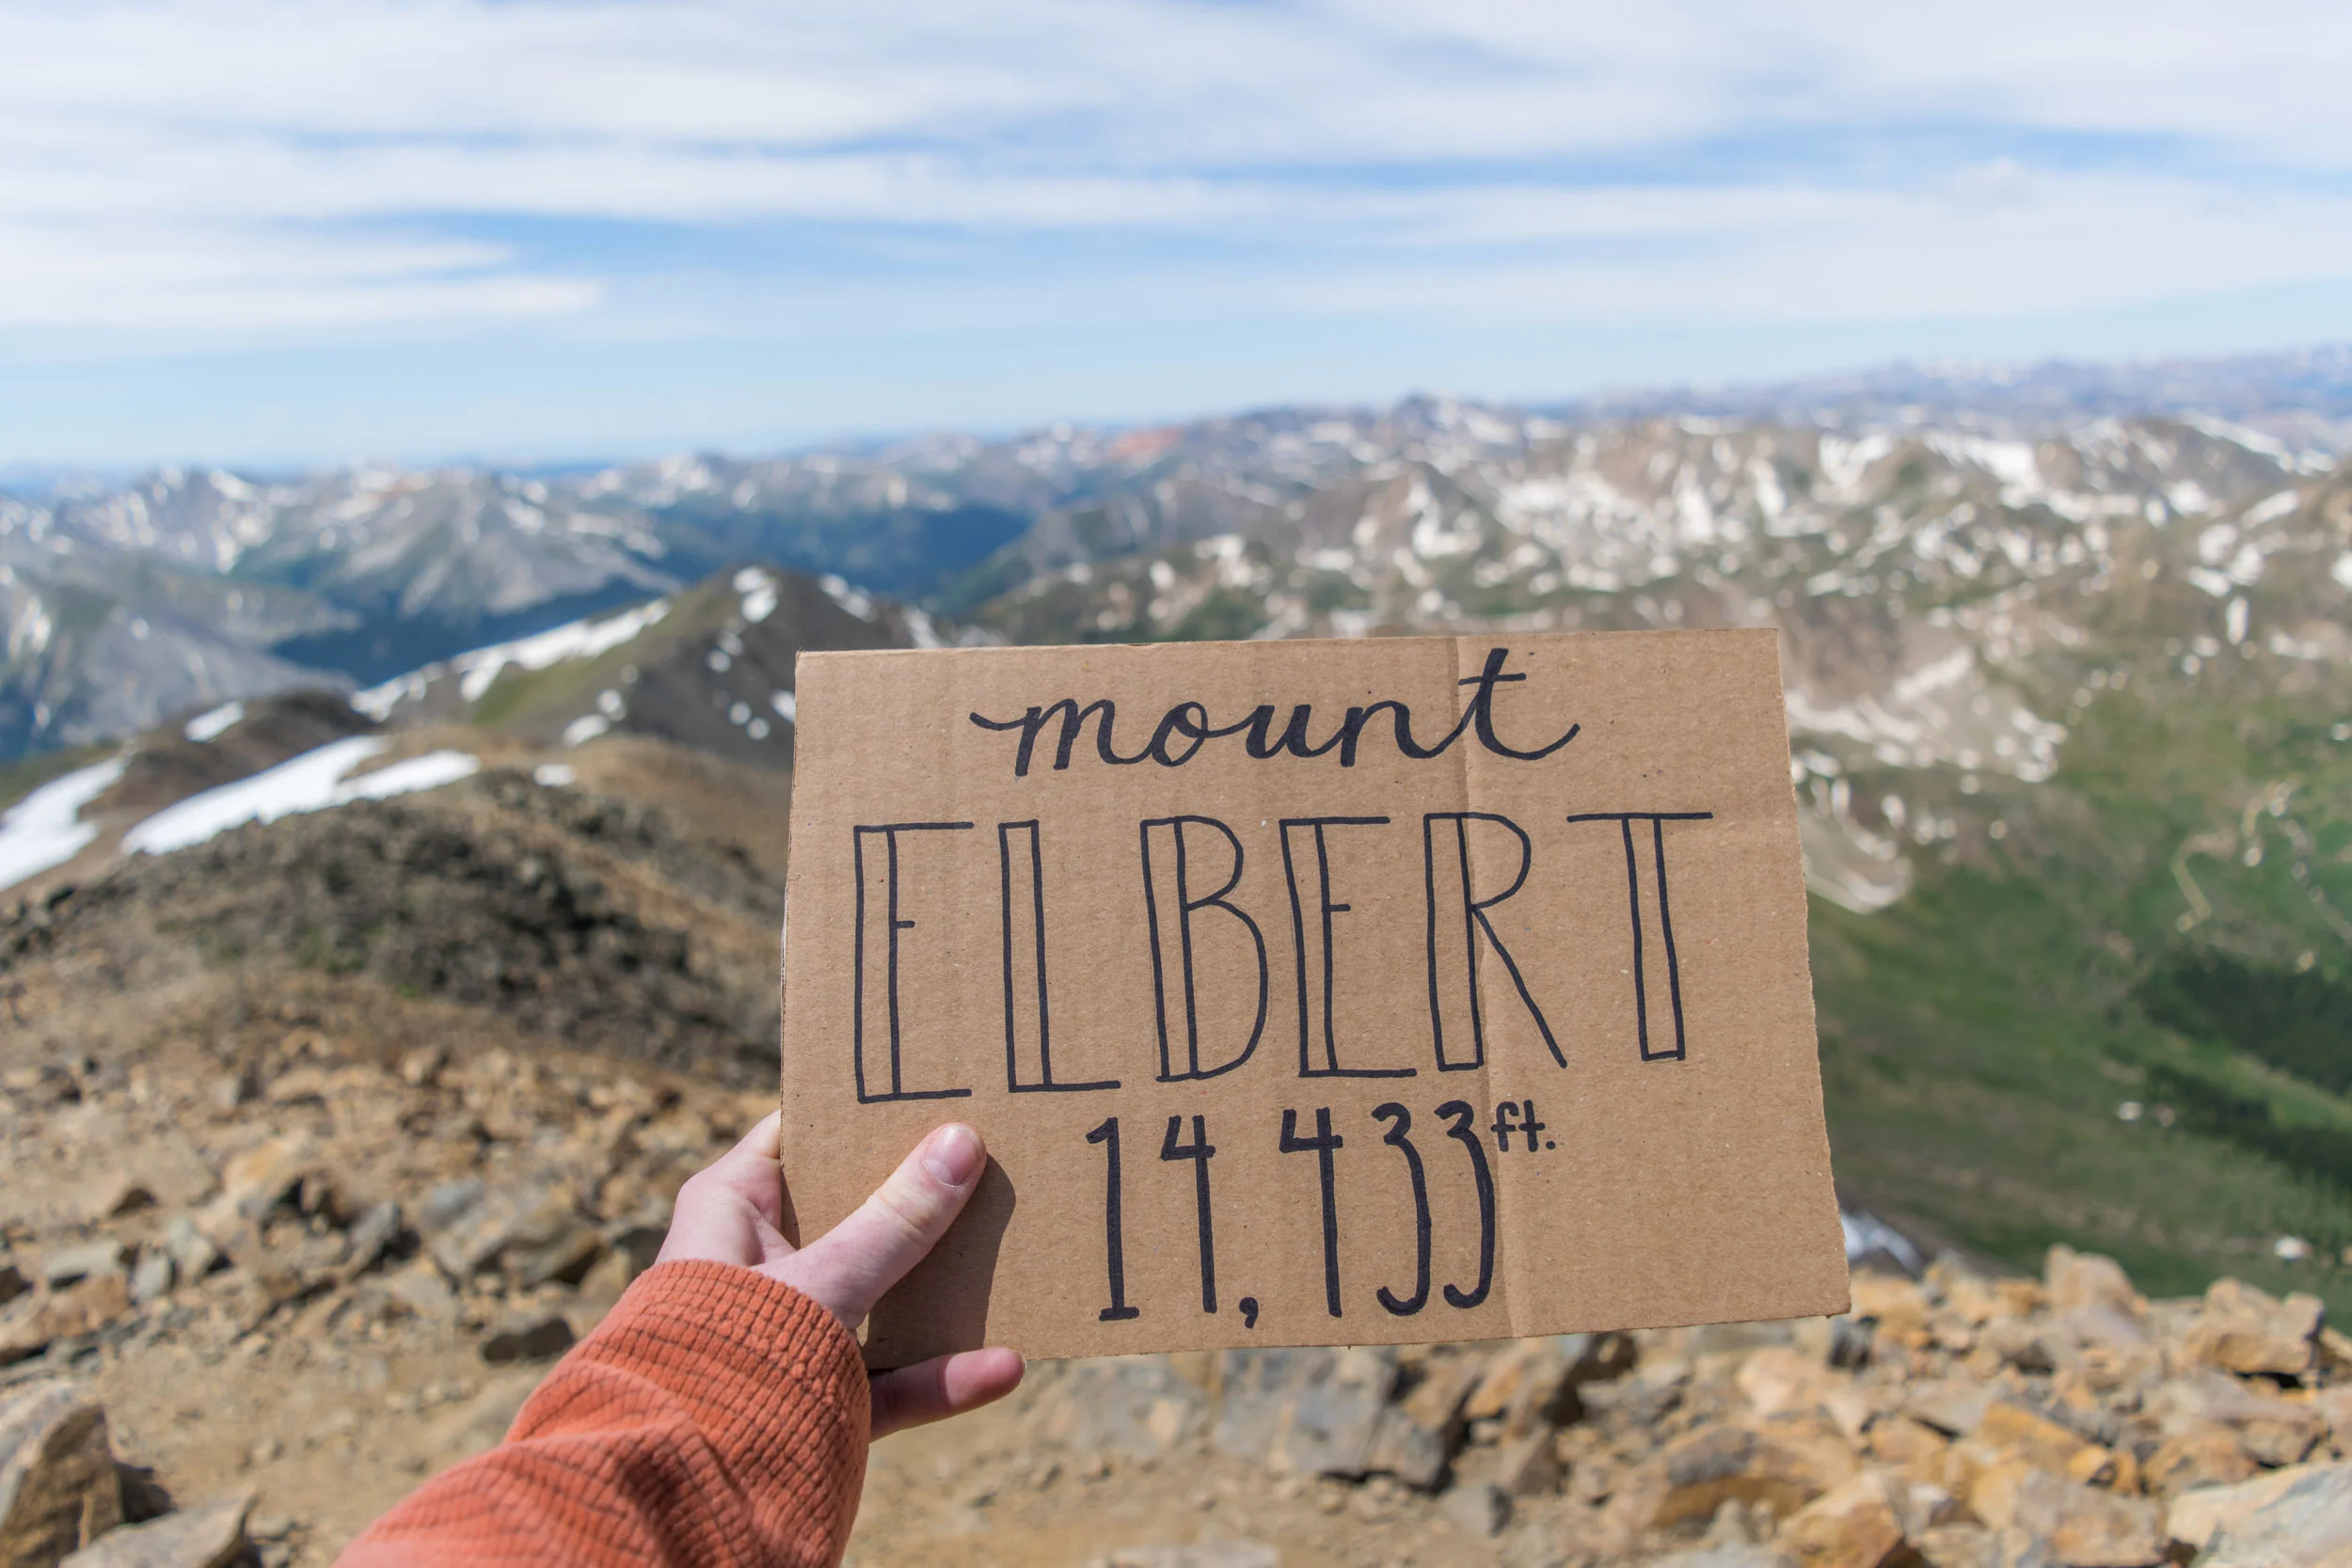 mount
ELBERT
14,433 ft.